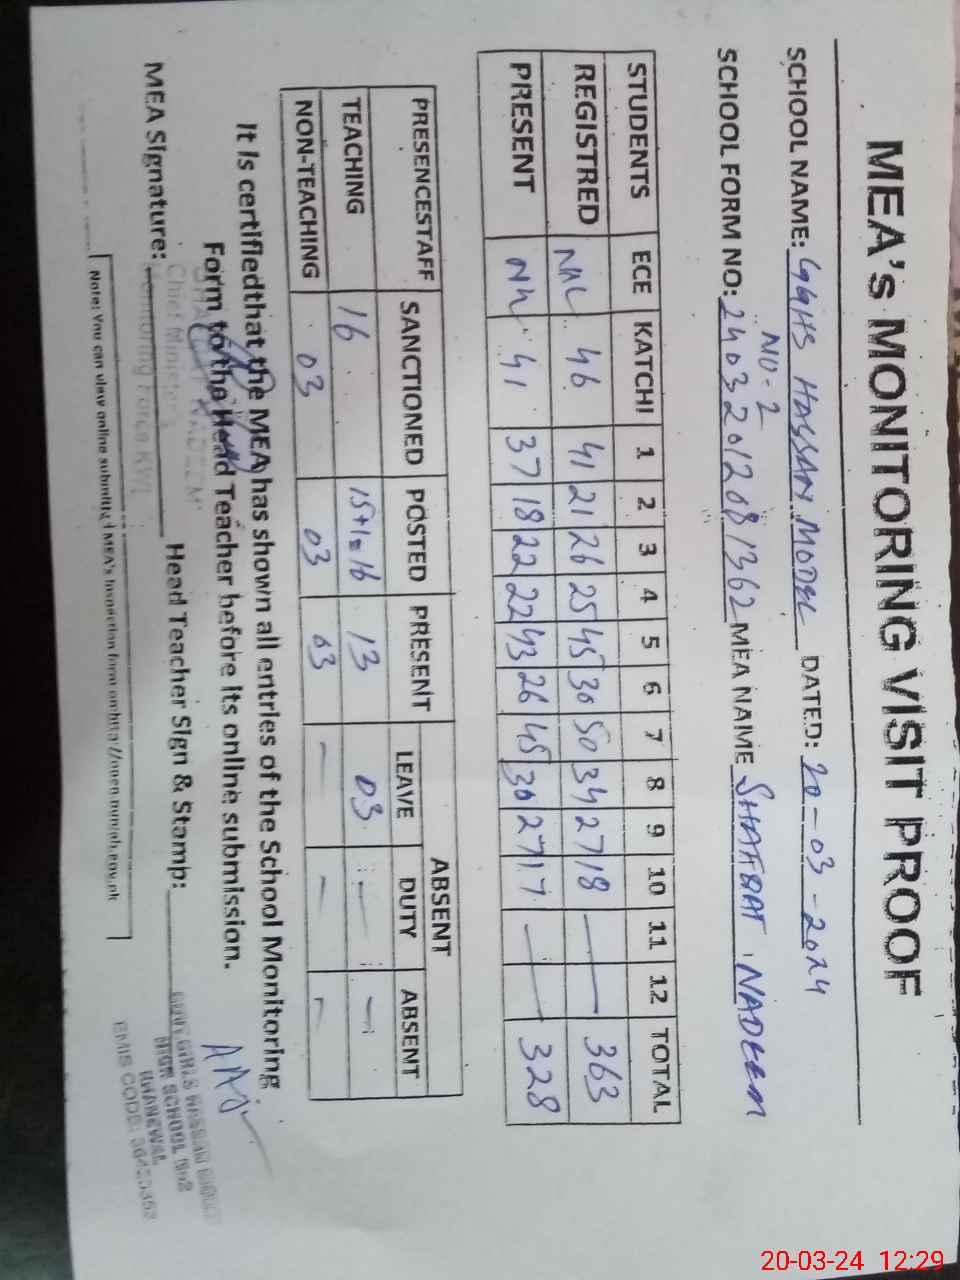 MEA'S MONITORING VISIT PROOF
SCHOOL NAME: GGHS HASSAN MODEL DATED: 20-03-2024
NO-2
SCHOOL FORM NO: 24032012081362 MEA NAME SHAFQAT NADEEM
STUDENTS ECE KATCHI 1 2 3 4 5 6 7 8 9 10 11 12 TOTAL
REGISTRED NIL 46 41 21 26 25 45 30 50 34 27 18 — 363
PRESENT NIL 41 37 18 22 22 43 26 45 30 27 17 — 328
ABSENT
PRESENCESTAFF SANCTIONED POSTED PRESENT LEAVE DUTY ABSENT
TEACHING 16 15+1=16 13 03 — —
NON-TEACHING 03 03 03 — — —
It is certifiedthat the MEA has shown all entries of the School Monitoring
Form to the Head Teacher before its online submission.
MEA Signature: Head Teacher Sign & Stamp:
Chief Minister's
Monitoring Force KWL
GOVT. GIRLS HASSAN MODEL
HIGH SCHOOL No2
KHANEWAL
EMIS CODE:
Note: You can view online submitted MEA's Inspection form on http://open.punjab.gov.pk
20-03-24 12:29